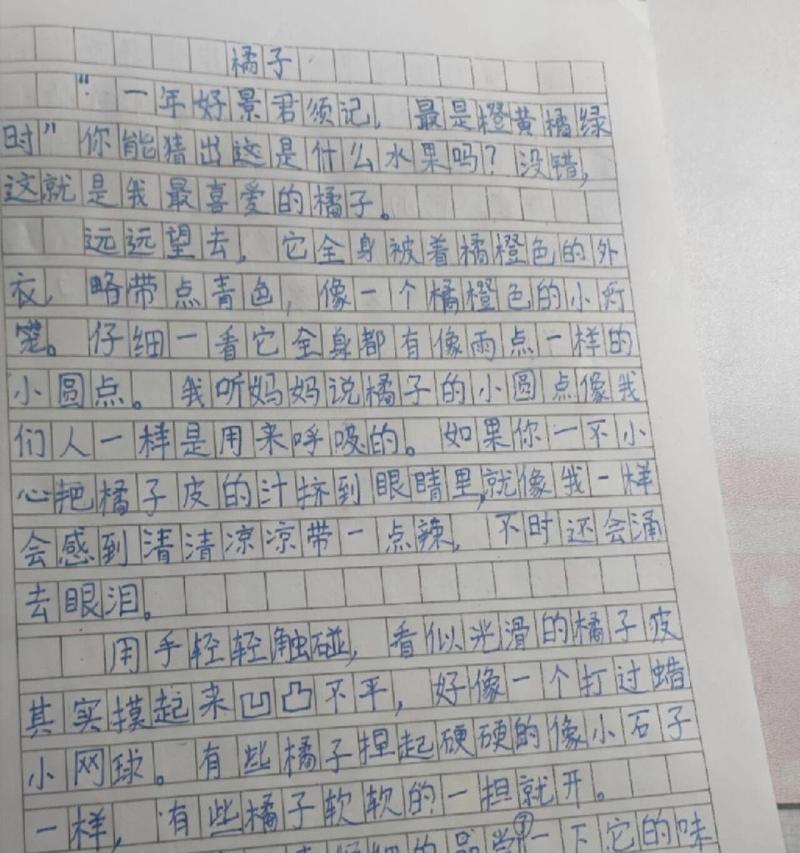 橘子
“一年好景君须记，最是橙黄橘绿
时”你能猜出这是什么水果吗？没错，
这就是我最喜爱的橘子。
远远望去，它全身被着橘橙色的外
衣，略带点青色，像一个橘橙色的小灯
笼。仔细一看它全身都有像雨点一样的
小圆点。我听妈妈说橘子的小圆点像我
们人一样是用来呼吸的。如果你一不小
心把橘子皮的汁挤到眼睛里，就像我一样
会感到清清凉凉带一点辣，不时还会涌
去眼泪。
用手轻轻触碰，看似光滑的橘子皮
其实摸起来凹凸不平，好像一个打过蜡
小网球。有些橘子捏起硬硬的像小石子
一样，有些橘子软软的一担就开。
细的品尝一下它的味